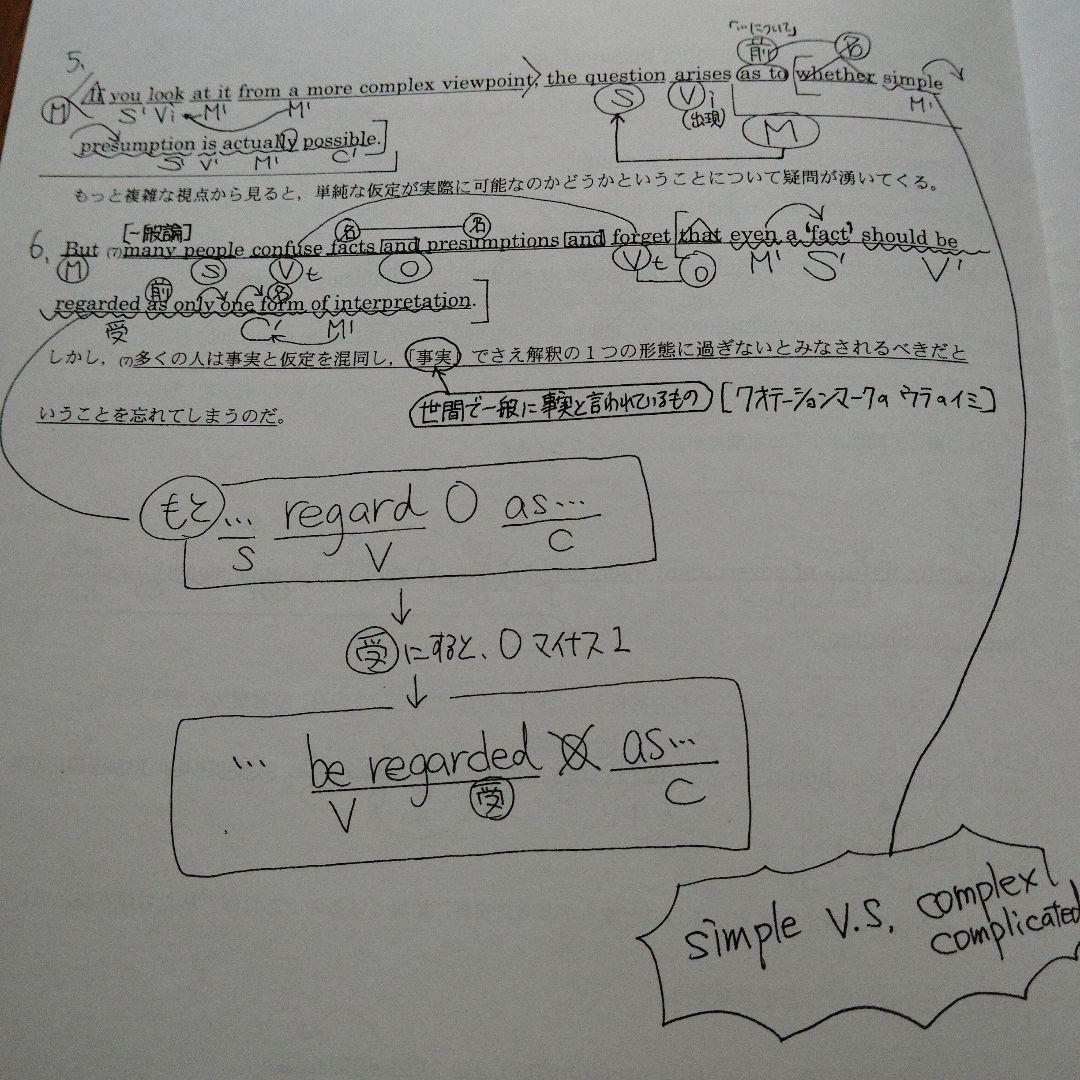 「…について」
前 名
5、
If you look at it from a more complex viewpoint, the question arises as to whether simple
M S' Vi M' M' S Vi M'
(出現)
M
presumption is actually possible.
S' V' M' C'
もっと複雑な視点から見ると，単純な仮定が実際に可能なのかどうかということについて疑問が湧いてくる。
[一般論] 名 名
6、 But (7)many people confuse facts and presumptions and forget that even a 'fact' should be
M S Vt O Vt O M' S' V'
前 名
regarded as only one form of interpretation.
受 C' M'
しかし，(7)多くの人は事実と仮定を混同し，「事実」でさえ解釈の１つの形態に過ぎないとみなされるべきだと
いうことを忘れてしまうのだ。
世間で一般に事実と言われているもの [クオテーションマークのウラのイミ]
もと … regard O as…
S V C
↓
受にすると、Oマイナス1
↓
… be regarded O as…
V 受 C
simple V.S. complex
complicated